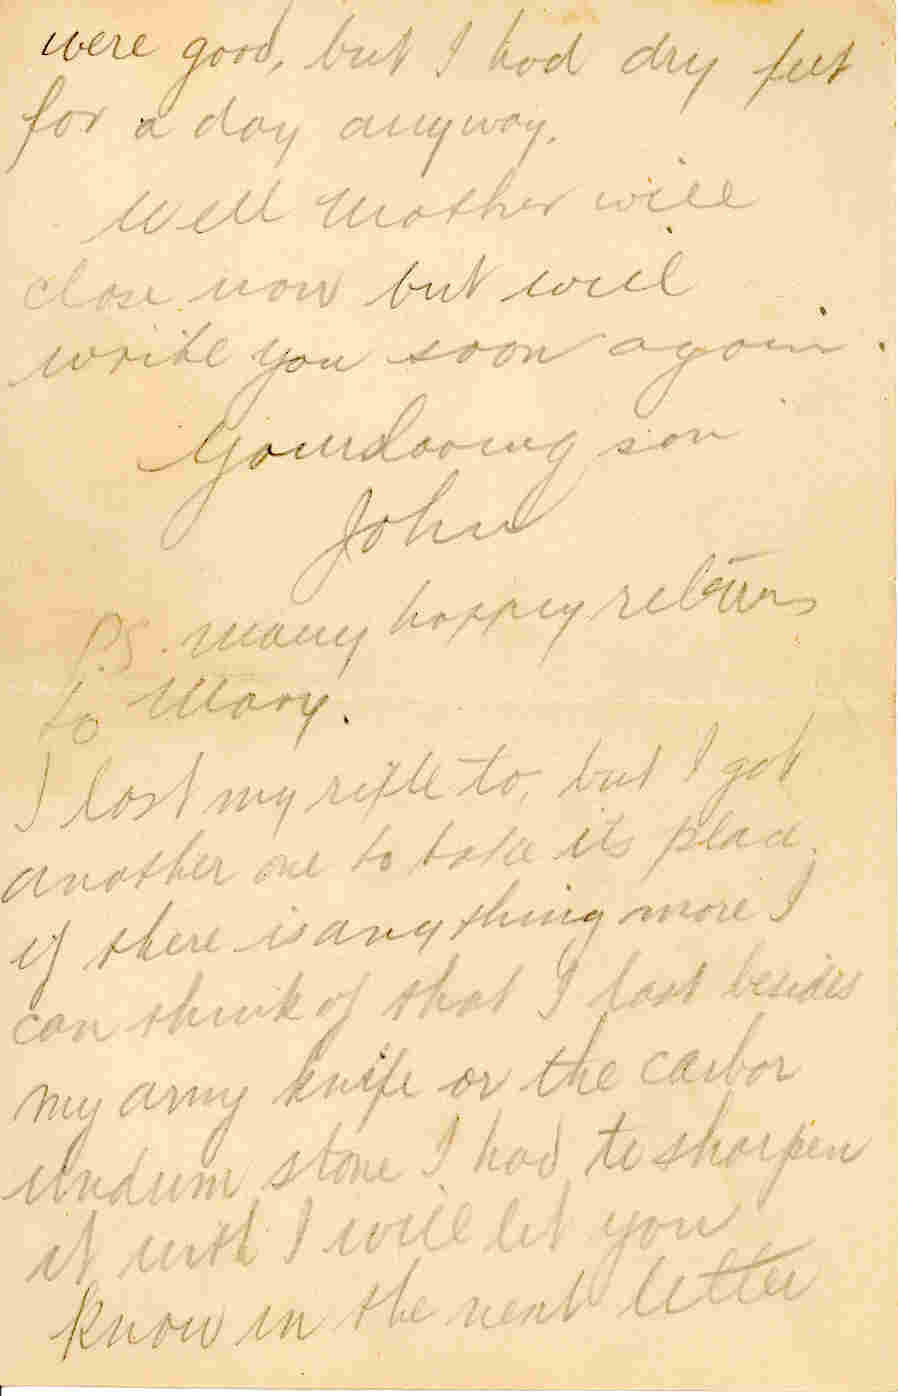 were good, but I had dry feet
for a day anyway.
Well Mother will
close now but will
write you soon again.
Your loving son
John
P.S. Many happy returns
to Mary.
I lost my rifle to, but I got
another one to take its place.
if there is anything more I
can think of that I lost besides
my army knife or the carbor
undum stone I had to sharpen
it with I will let you
know in the next letter